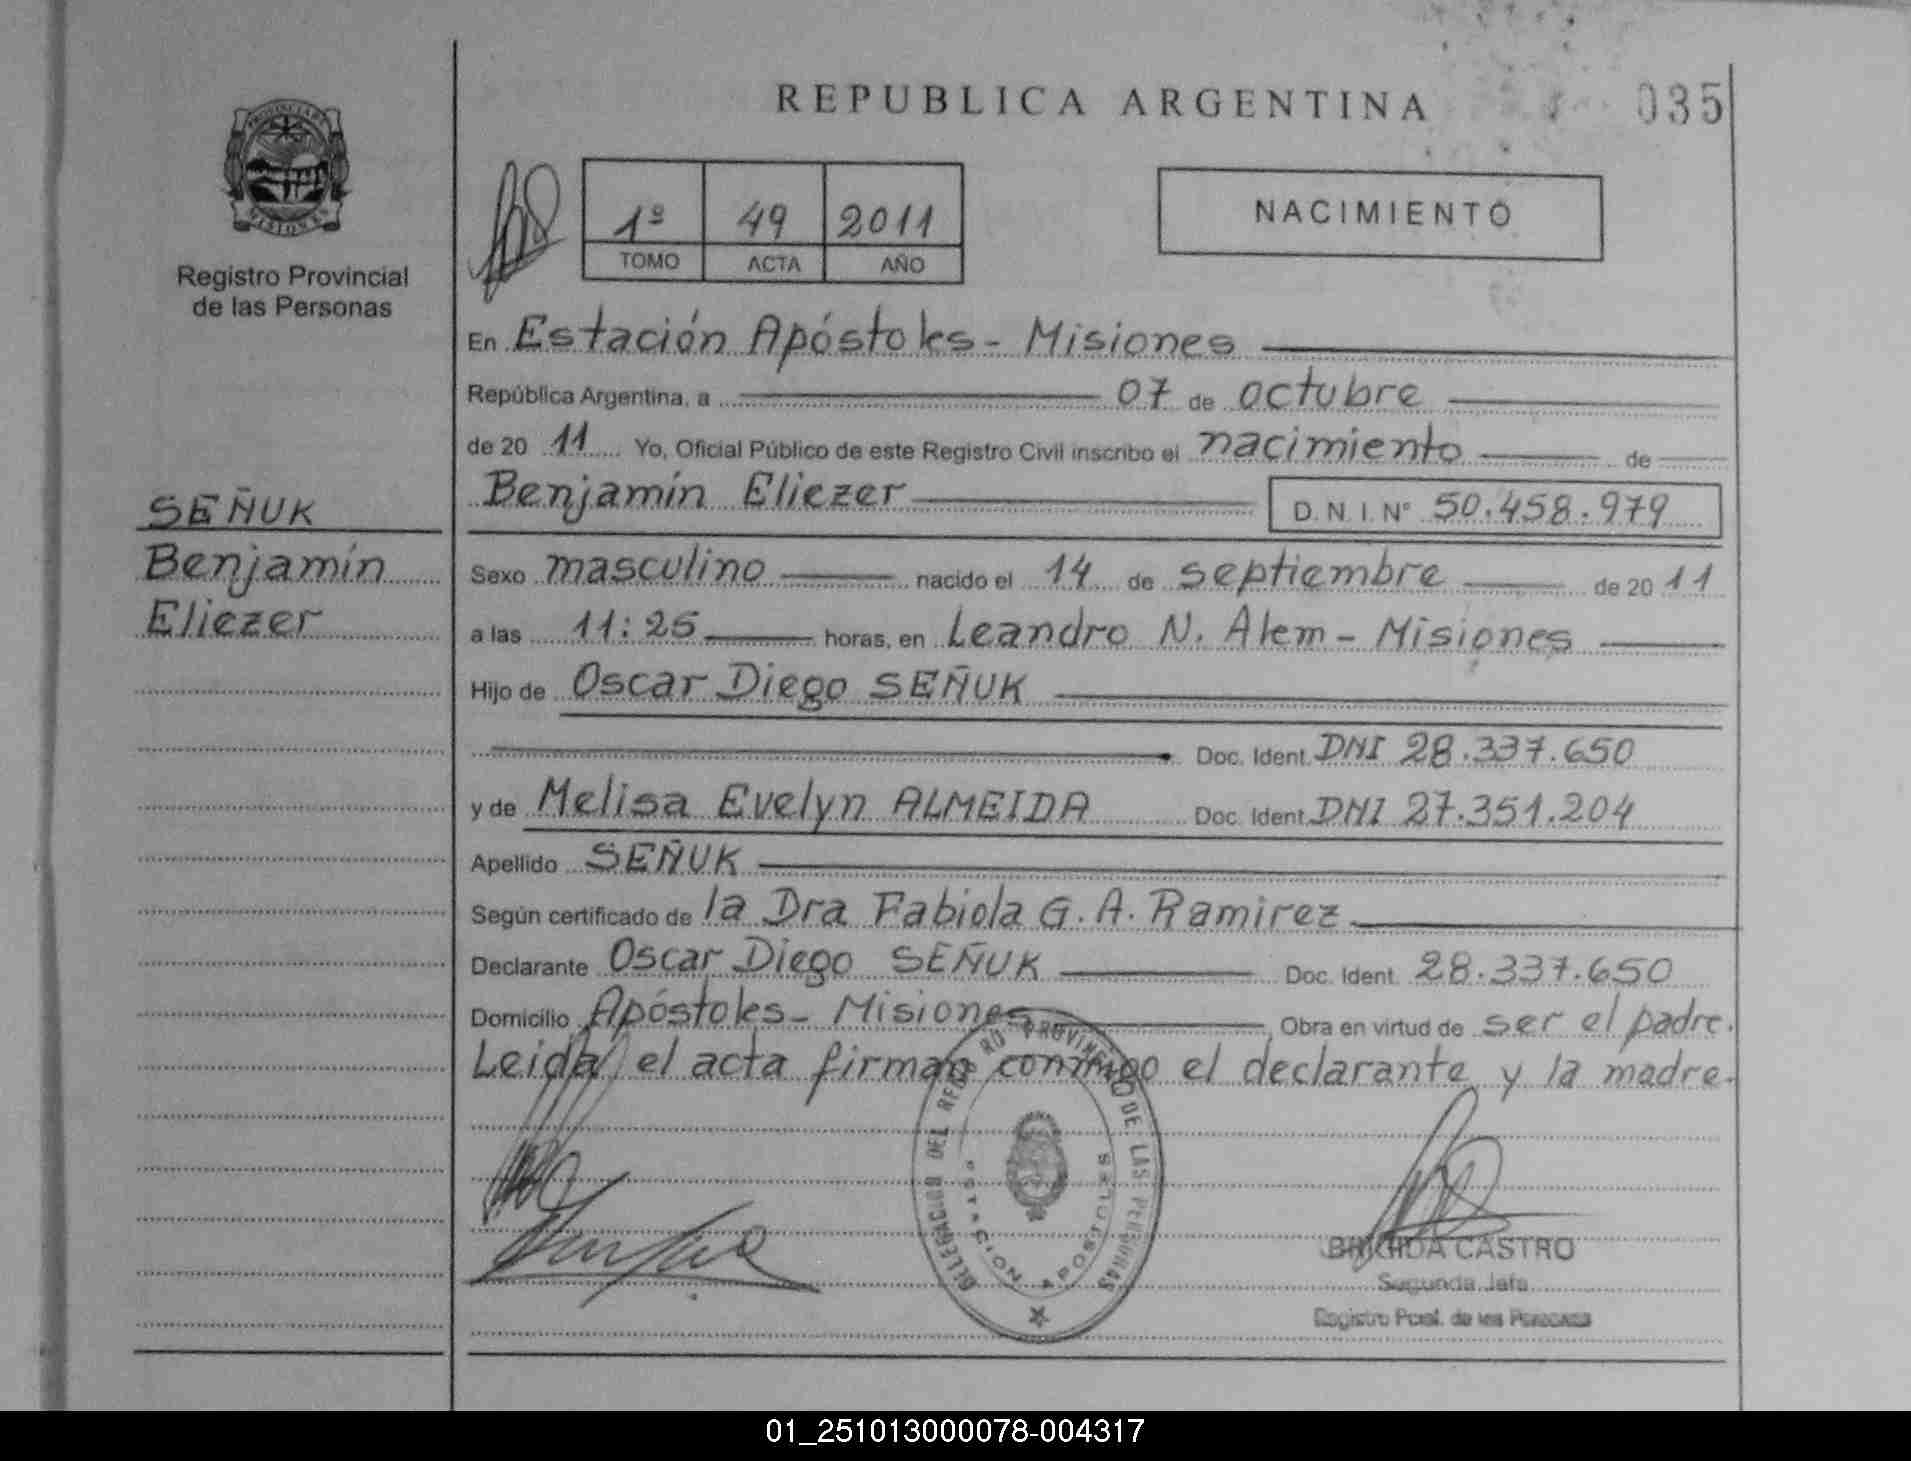 REPUBLICA ARGENTINA
035
PROVINCIA DE
MISIONES
Registro Provincial
de las Personas
1º 49 2011
TOMO ACTA AÑO
NACIMIENTO
En Estación Apóstoles - Misiones
República Argentina, a 07 de octubre
de 20 11 Yo, Oficial Público de este Registro Civil inscribo el nacimiento de
Benjamín Eliezer D.N.I. Nº 50.458.979
SEÑUK
Benjamín
Eliezer
Sexo masculino nacido el 14 de septiembre de 20 11
a las 11:25 horas, en Leandro N. Alem - Misiones
Hijo de Oscar Diego SEÑUK
Doc. Ident. DNI 28.337.650
y de Melisa Evelyn ALMEIDA Doc. Ident. DNI 27.351.204
Apellido SEÑUK
Según certificado de la Dra Fabiola G. A. Ramirez
Declarante Oscar Diego SEÑUK Doc. Ident. 28.337.650
Domicilio Apóstoles - Misiones Obra en virtud de ser el padre.
Leida el acta firman conmigo el declarante y la madre.
DELEGACION DEL REGISTRO PROVINCIAL DE LAS PERSONAS
ESTACION APOSTOLES
BRIGIDA CASTRO
Segunda Jefa
Registro Pcial. de las Personas
01_251013000078-004317